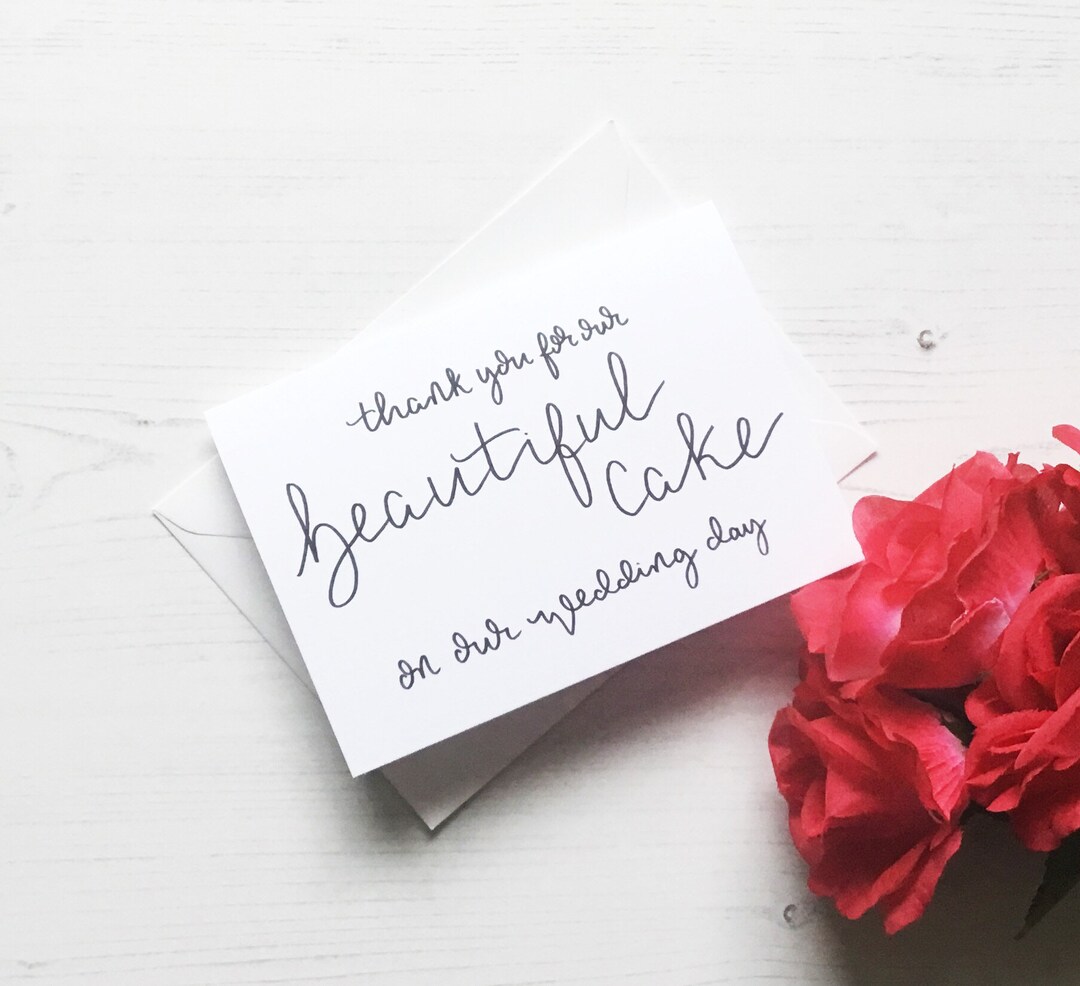 thank you for our
beautiful
cake
on our wedding day